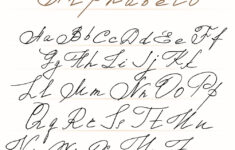 Alphabets
Aa Bb Cc Dd Ee Ff
Gg Hh Ii Jj Kk
Ll Mm Nn Oo Pp
Qq Rr Ss Tt Uu